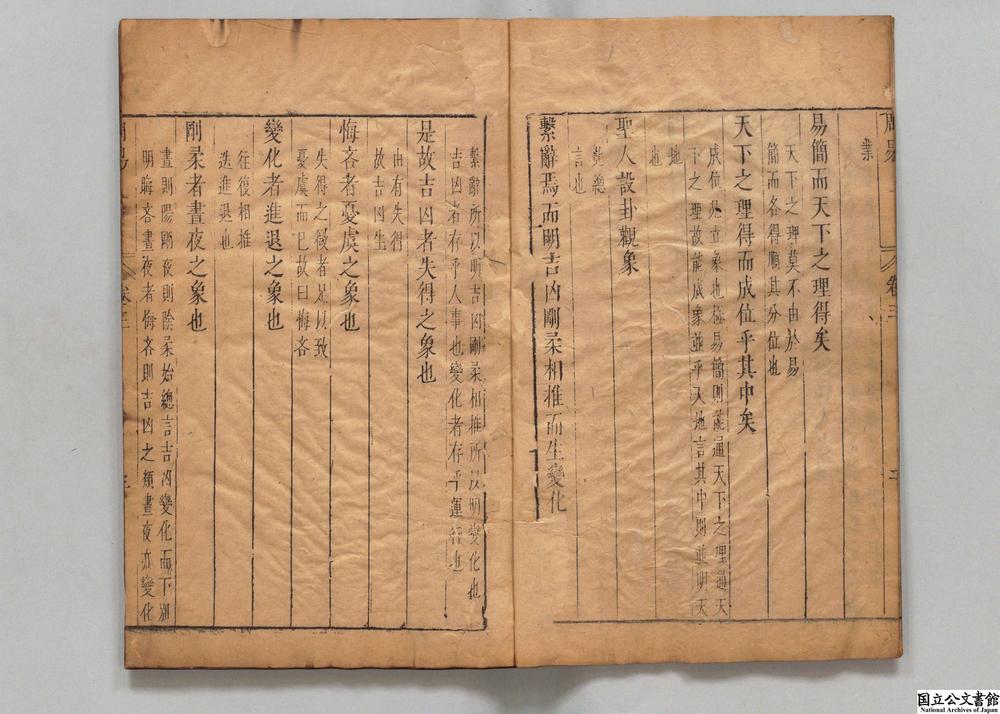 業
易簡而天下之理得矣
天下之理莫不由於易
簡而各得順其分位也
天下之理得而成位乎其中矣
成位至立象也極易簡則能通天下之理通天
下之理故能成象並乎天地言其中則並明天
地也
聖人設卦觀象
此總
言也
繫辭焉而明吉凶剛柔相推而生變化
繫辭所以明吉凶剛柔相推所以明變化也
吉凶者存乎人事也變化者存乎運行也
是故吉凶者失得之象也
由有失得
故吉凶生
悔吝者憂虞之象也
失得之微者足以致
憂虞而已故曰悔吝
變化者進退之象也
往復相推
迭進退也
剛柔者晝夜之象也
晝則陽剛夜則陰柔始總言吉凶變化而下別
明悔吝晝夜者悔吝則吉凶之類晝夜亦變化
周易
卷三
三
国立公文書館
National Archives of Japan